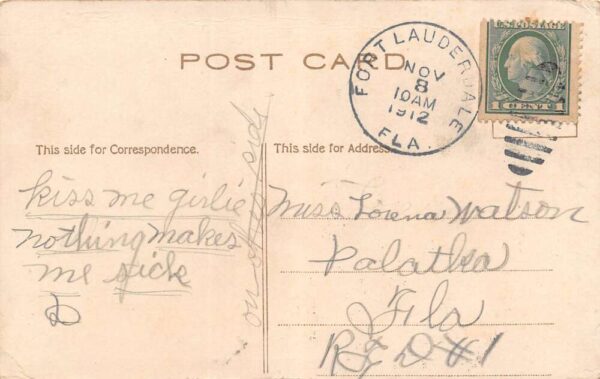 POST CARD
FORT LAUDERDALE
NOV
8
10AM
1912
FLA.
U.S. POSTAGE
1 CENT 1
This side for Correspondence.
This side for Address.
kiss me girlie
nothing makes
me sick
on other side
Miss Lorena Watson
Palatka
Fla
R F D #1